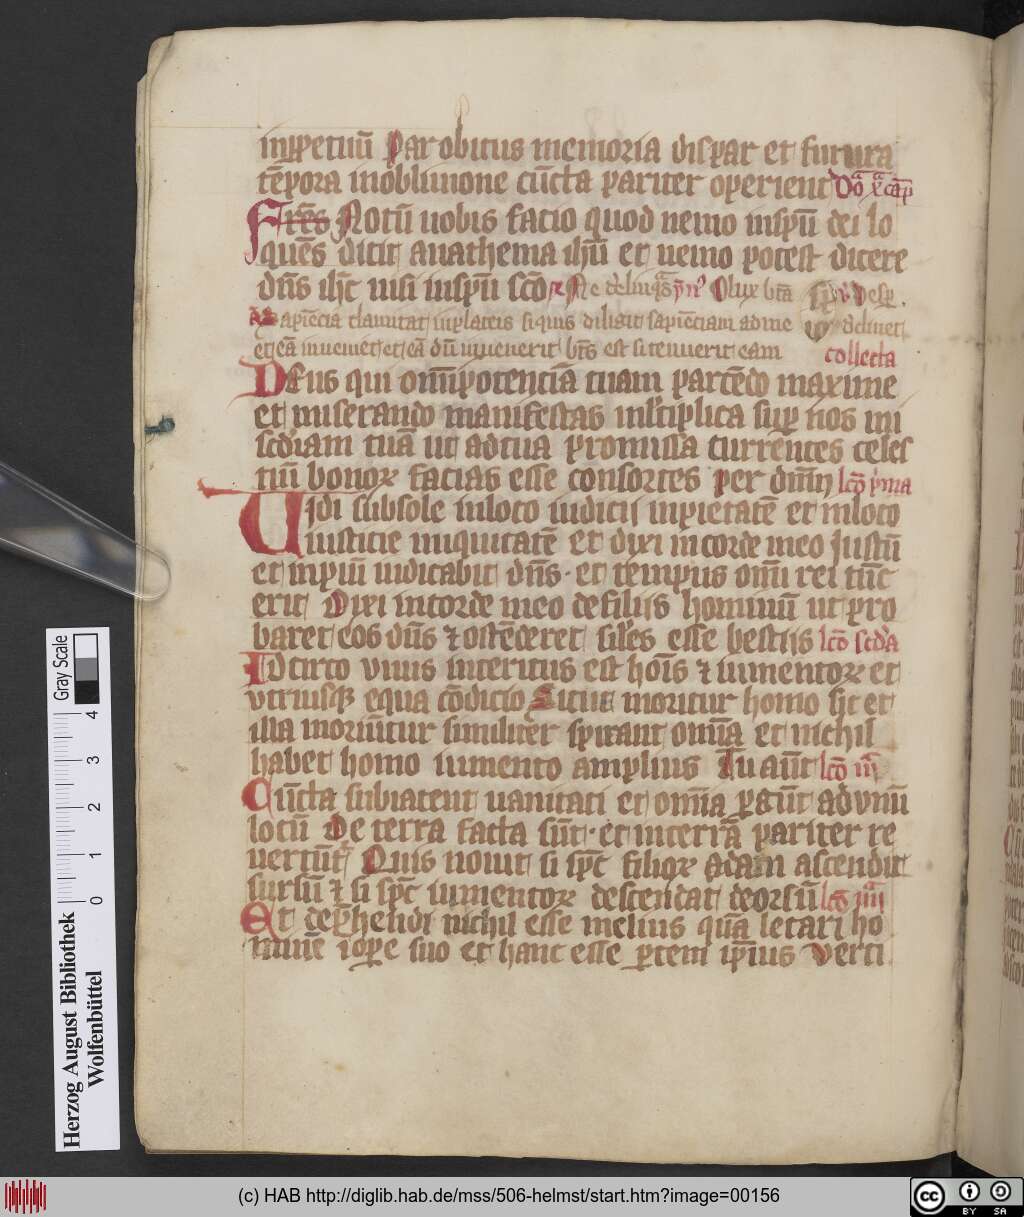 inpͥpetuū Par obitus memoria dispar et futura
tēpora inobliuione cūcta pariter operient Dō x cap
Frēs Notū uobis facio quod nemo inspū dei lo
quēs dicit anathema ihū et nemo potest dicere
dn̄s ih̄c nisi inspū scō R Ne delinq̄s O lux btā
Sapiēcia clamitat inplateis siquis diligit sapiēciam adme declinet
et eā inueniet et eā dū inuenerit bt̄s est si tenuerit eam collecta
Deus qui om̄ipotenciā tuam parcēdo maxime
et miserando manifestas mltiplica sup nos mi
scdiam tuā ut adtua promissa currentes celes
tiū bonoꝝ facias esse consortes per dnm lcō p̄ma
Uidi subsole inloco iudicij inpietatē et inloco
iusticie iniquitatē et dixi incorde meo Justū
et inpiū iudicabit dn̄s· et tempus om̄i rei tūc
erit Dixi incorde meo defilijs hominū ut pro
baret eos dn̄s ⁊ ostēderet sil̄es esse bestijs lcō scd̄a
Idcirco vnus interitus est hoīs ⁊ iumentoꝝ et
vtriusqꝫ equa cōdicio Sicut moritur homo sic et
illa moriūtur similiter spirant omīa et nichil
habet homo iumento amplius Tu aūt lcō iij
Cūcta subiacent uanitati et omīa ꝑgūt advnū
locū De terra facta sūt· et interrā pariter re
uertūt Quis nouit si spc̄ filioꝝ adam ascendit
sursū ⁊ si spc̄ iumentoꝝ descendat deorsū lcō iiij
Et depͥhendi nichil esse melius quā letari ho
minē iope suo et hanc esse ꝑtem ip̄ius Verti
Gray Scale
4
3
2
1
0
Herzog August Bibliothek
Wolfenbüttel
(c) HAB http://diglib.hab.de/mss/506-helmst/start.htm?image=00156
cc BY SA